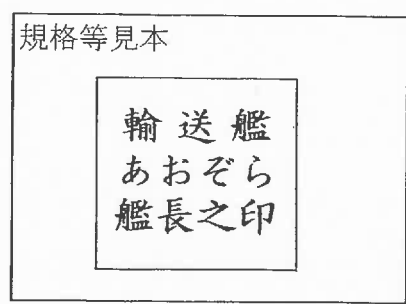 規格等見本
輸送艦
あおぞら
艦長之印